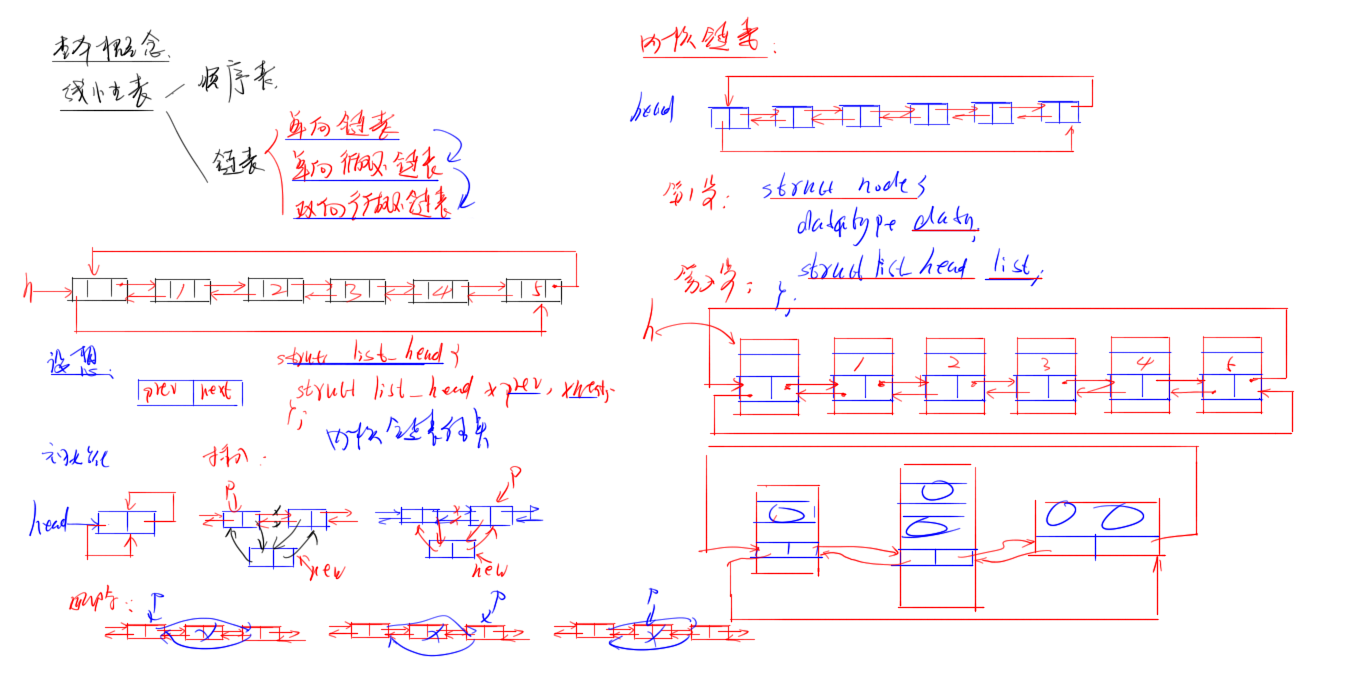 基本概念.
线性表
顺序表.
链表
单向链表
单向循环链表
双向循环链表
h
1 2 3 4 5
设想:
prev next
struct list_head {
struct list_head *prev, *next;
};
内核链表结点
初始化
head
插入:
P
new
P
new
删除:
P
P
P
内核链表.
head
第1步: struct node {
datatype data;
struct list_head list;
};
第2步:
h
1 2 3 4 5